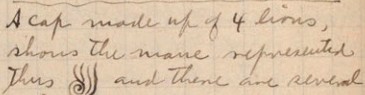 A cap made up of 4 lions,
shows the mane represented
thus and there are several